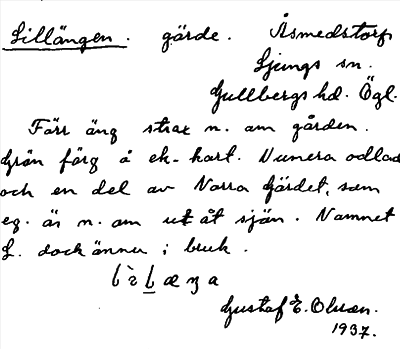 Lillängen. gärde. Åsmedstorp
Ljungs sn.
Gullbergs hd. Ögl.
Förr äng strax n. om gården.
Grön färg å ek. kart. Numera odlad
och en del av Norra Gärdet, som
eg. är n. om ut åt sjön. Namnet
L. dock ännu i bruk.
Gustaf E. Olsson.
1937.